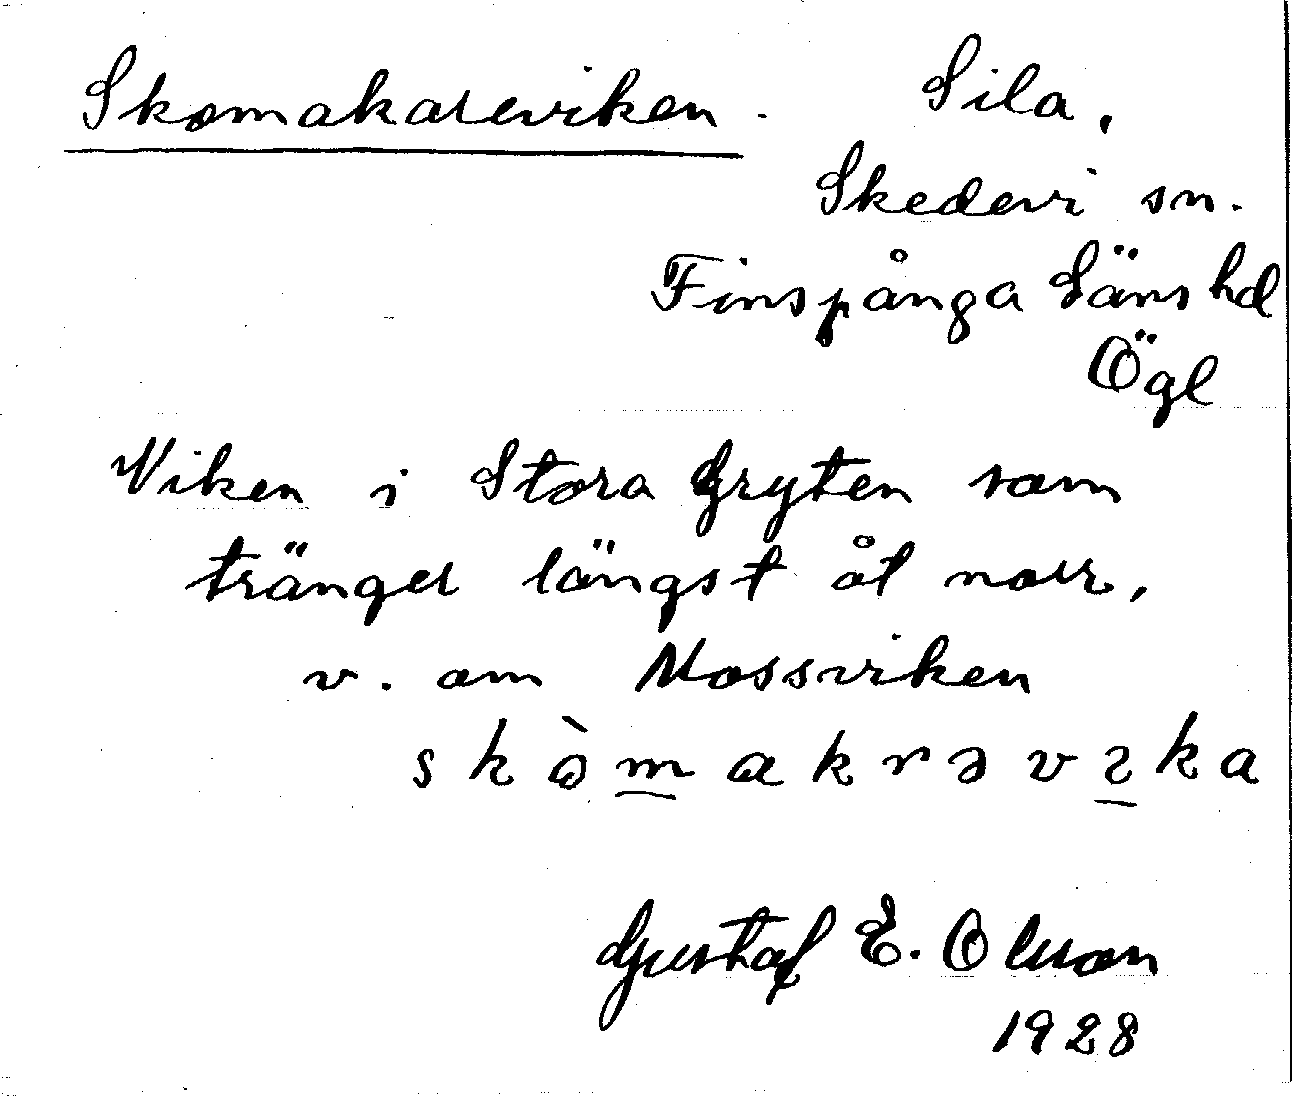 Skomakareviken. Sila,
Skedevi sn.
Finspånga Läns hd
Ögl
Viken i Stora Gryten som
tränger längst åt norr,
v. om Mossviken
skòmakrəvıka
Gustaf E. Olsson
1928